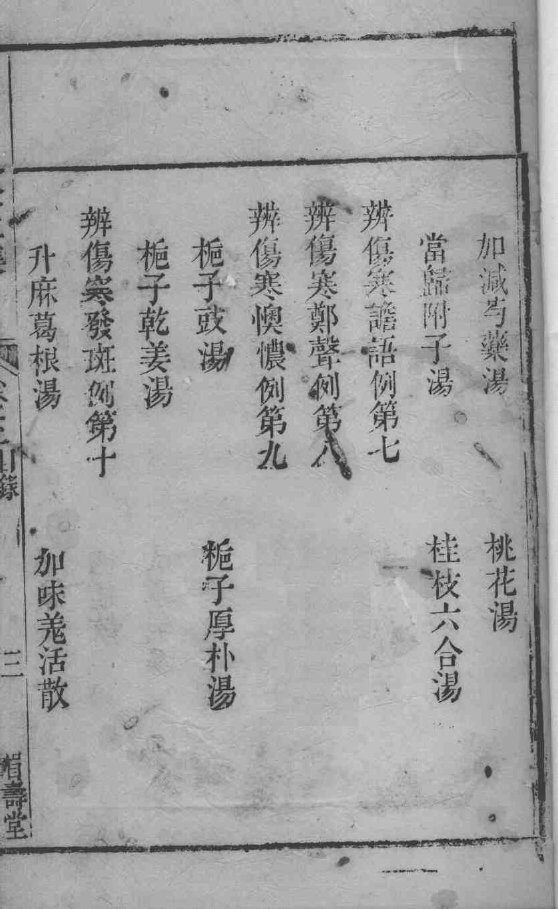 加減芍藥湯 桃花湯
當歸附子湯 桂枝六合湯
辨傷寒譫語例第七
辨傷寒鄭聲例第八
辨傷寒懊憹例第九
梔子豉湯 梔子厚朴湯
梔子乾姜湯
辨傷寒發斑例第十
升麻葛根湯 加味羗活散
目錄 三 眉壽堂